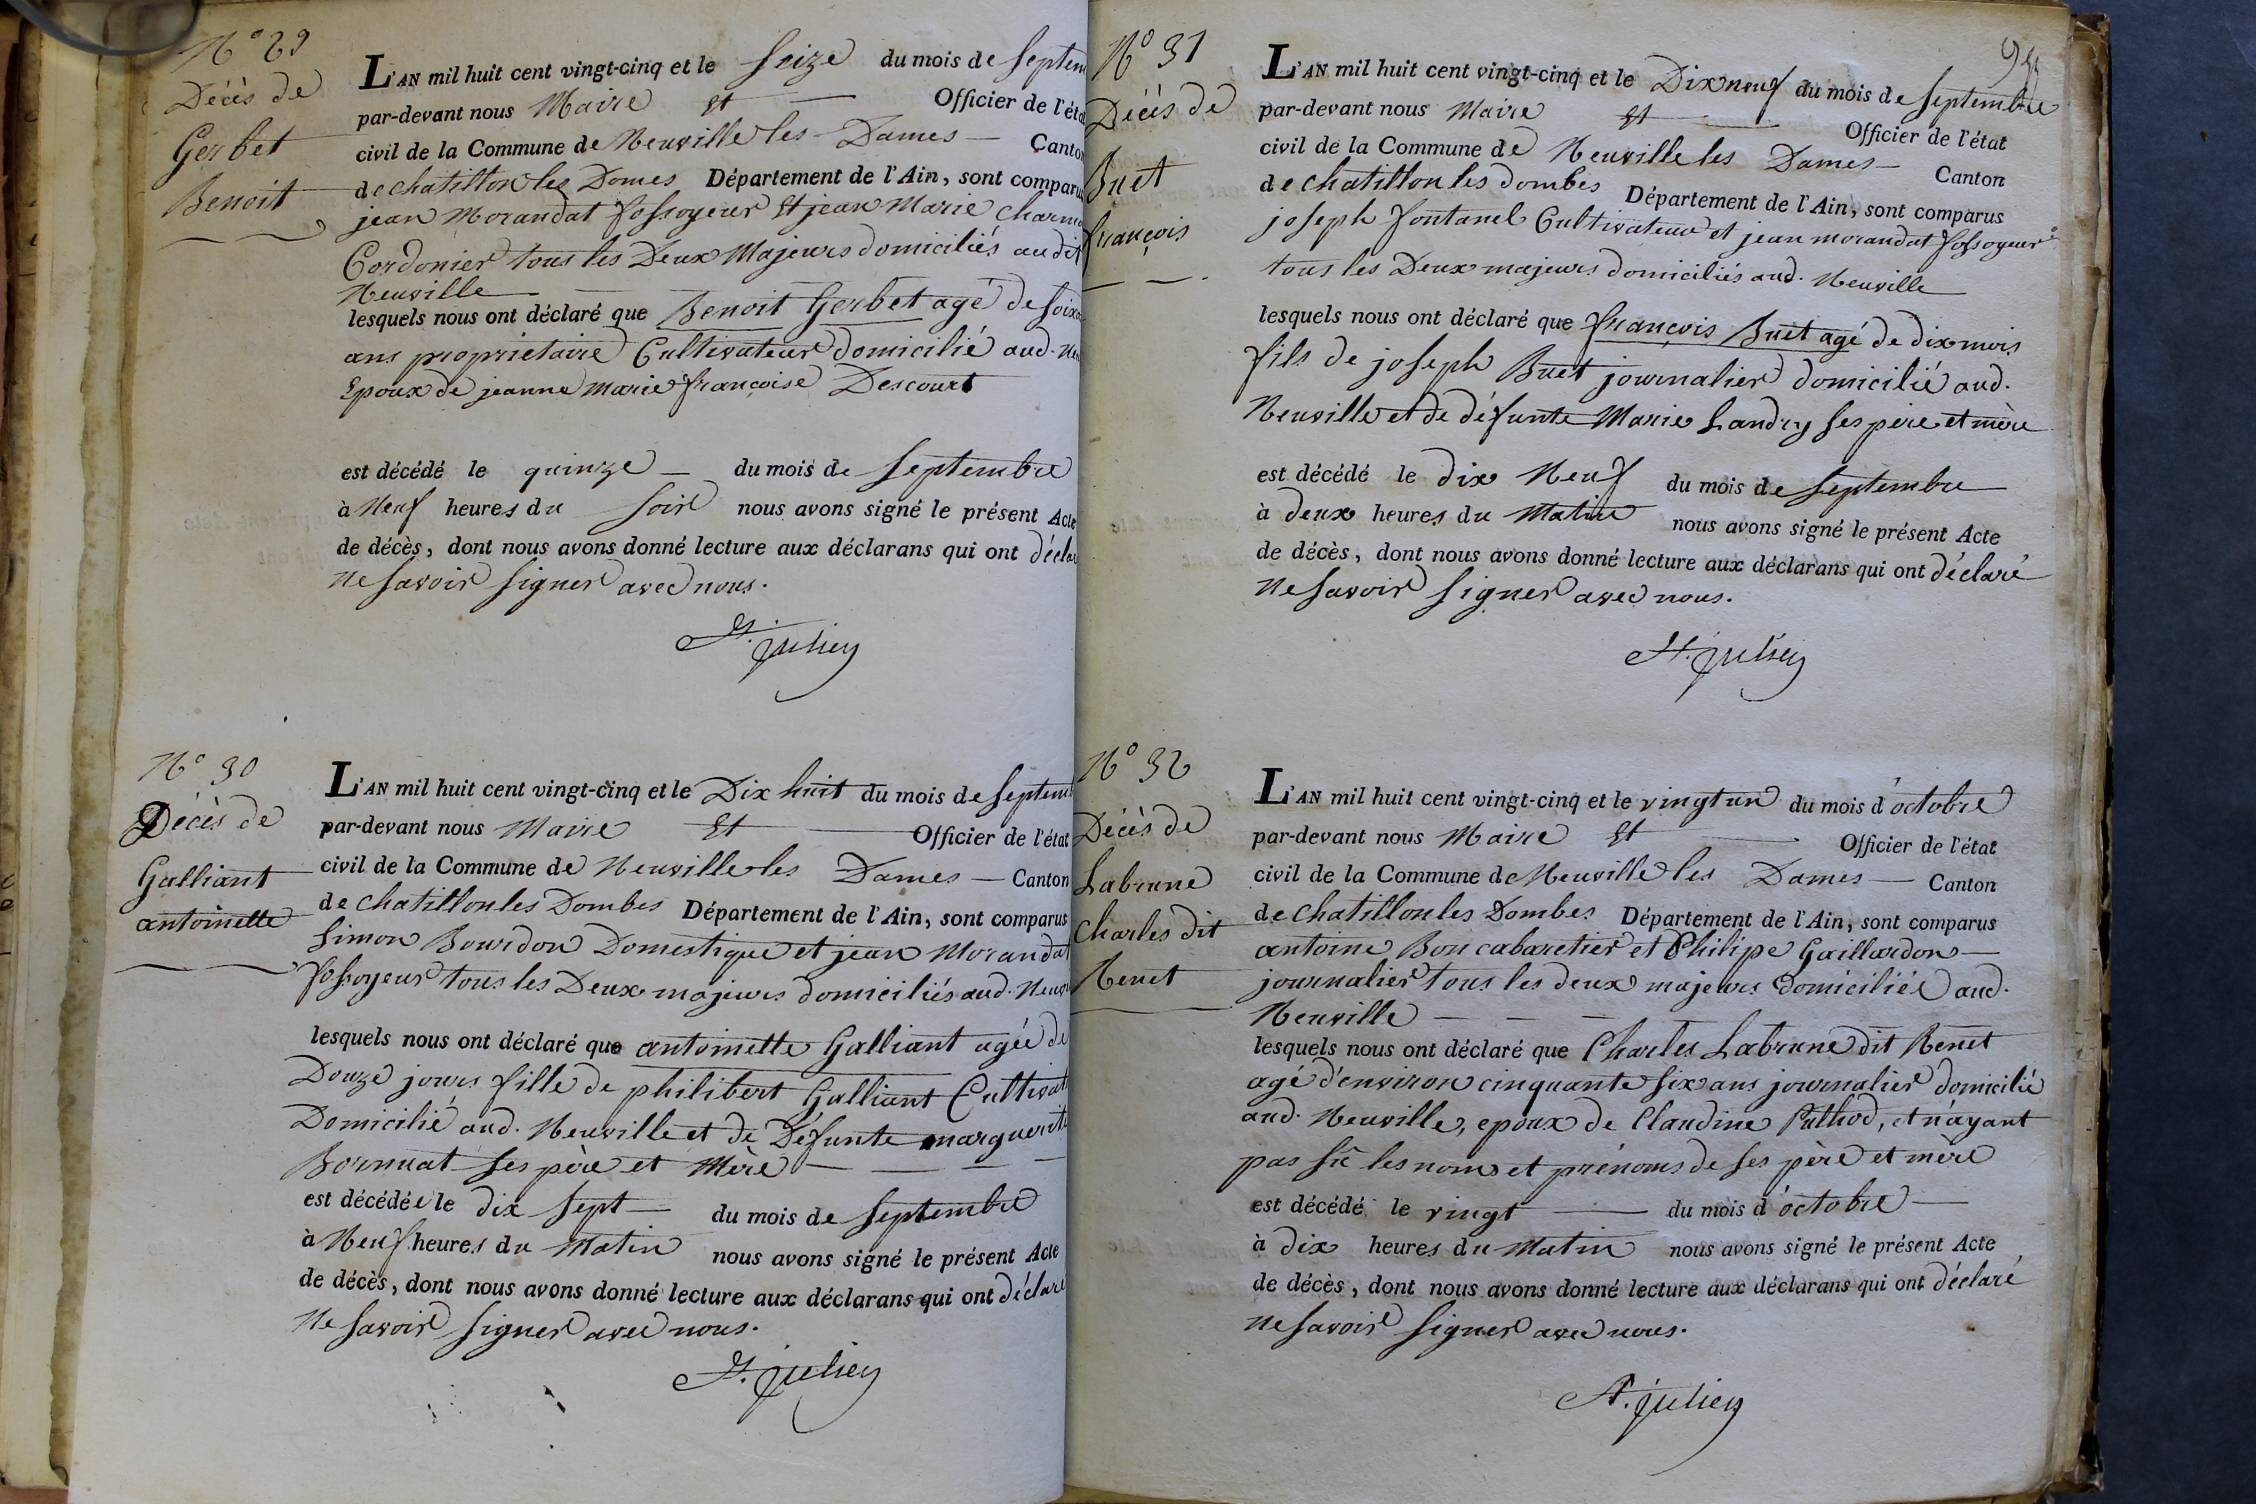 N° 29
Décès de
Gerbet
Benoit
L'AN mil huit cent vingt-cinq et le Seize du mois de Septem
par-devant nous Maire Et Officier de l'éta
civil de la Commune de Neuville les Dames Canton
de chatillon les Domes Département de l'Ain, sont comparu
jean Morandat fossoyeur Et jean Marie
Cordonier tous les Deux Majeurs domiciliés audit
Neuville
lesquels nous ont déclaré que Benoit Gerbet agé de Soix
ans propriétaire Cultivateur domicilié aud. Neu
Epoux de jeanne marie françoise Descourt
est décédé le quinze du mois de Septembre
à Neuf heures du Soir nous avons signé le présent Acte
de décès, dont nous avons donné lecture aux déclarans qui ont décla
Ne Savoir Signer avec nous.
St. julien
N° 30
Décès de
Galliant
antoinette
L'AN mil huit cent vingt-cinq et le Dix huit du mois de Septem
par-devant nous Maire Et Officier de l'état
civil de la Commune de Neuville les Dames Canton
de chatillon les Dombes Département de l'Ain, sont comparus
Simon Bourdon Domestique et jean Morandat
fossoyeur tous les Deux majeurs domiciliés aud. Neuv
lesquels nous ont déclaré que antoinette Galliant agée de
Douze jours fille de philibert Galliant Cultivat
Domicilié aud. Neuville et de Défunte marguerite
Bornuat Ses père et Mère
est décédée le dix Sept du mois de Septembre
à Neuf heures du Matin nous avons signé le présent Acte
de décès, dont nous avons donné lecture aux déclarans qui ont déclaré
Ne Savoir Signer avec nous.
St. julien
N° 31
Décès de
Buet
françois
L'AN mil huit cent vingt-cinq et le Dix neuf du mois de Septembre
par-devant nous Maire Et Officier de l'état
civil de la Commune de Neuville les Dames Canton
de chatillon les dombes Département de l'Ain, sont comparus
joseph fontanel Cultivateur et jean morandat fossoyeur
tous les Deux majeurs domiciliés aud. Neuville
lesquels nous ont déclaré que françois Buet agé de dix mois
fils de joseph Buet journalier domicilié aud.
Neuville et de défunte Marie Landry Ses père et mère
est décédé le dix Neuf du mois de Septembre
à deux heures du Matin nous avons signé le présent Acte
de décès, dont nous avons donné lecture aux déclarans qui ont déclaré
Ne Savoir Signer avec nous.
St. julien
N° 32
Décès de
Labrune
Charles dit
Renet
L'AN mil huit cent vingt-cinq et le vingt un du mois d'octobre
par-devant nous Maire Et Officier de l'état
civil de la Commune de Neuville les Dames Canton
de Chatillon les Dombes Département de l'Ain, sont comparus
antoine Bon cabaretier et Philipe Gaillardon
journalier tous les deux majeurs domiciliés aud.
Neuville
lesquels nous ont déclaré que Charles Labrune dit Renet
agé d'environ cinquante Six ans journalier domicilié
aud. Neuville, epoux de Claudine Puthod, et n'ayant
pas Sû les noms et prénoms de Ses père et mère
est décédé le vingt du mois d'octobre
à dix heures du Matin nous avons signé le présent Acte
de décès, dont nous avons donné lecture aux déclarans qui ont déclaré
Ne Savoir Signer avec nous.
St. julien